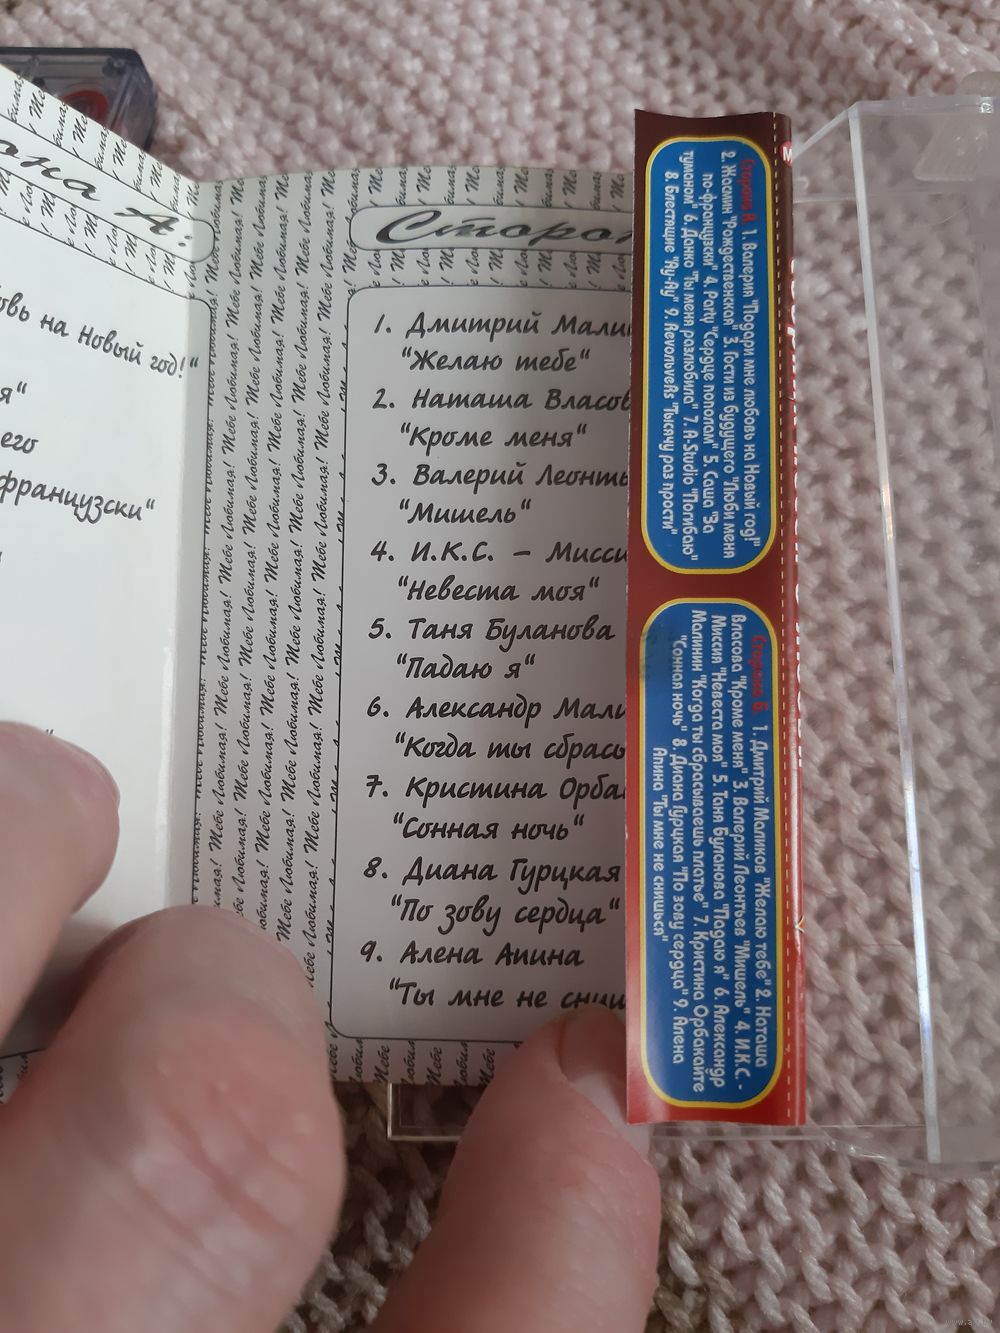 А:
на Новый год!"
я"
его
французски"
1. Дмитрий
"Желаю тебе"
2. Наташа
"Кроме меня"
3. Валерий
"Мишель"
4. И.К.С. –
"Невеста моя"
5. Таня Буланова
"Падаю я"
6. Александр
"Когда ты
7. Кристина
"Сонная ночь"
8. Диана Гурцкая
"По зову сердца"
9. Алена Апина
"Ты мне не
Тебе Любимая! Тебе Любимая! Тебе Любимая!
Сторона А. 1. Валерия "Подари мне любовь на Новый год!"
2. Жасмин "Рождественская" 3. Гости из будущего "Люби меня
по-французски" 4. Party "Сердце пополам" 5. Саша "За
туманом" 6. Данко "Ты меня разлюбила" 7. A-Studio "Погибаю"
8. Блестящие "Ау-Ау" 9. Revolvers "Тысячу раз прости"
Сторона Б. 1. Дмитрий Маликов "Желаю тебе" 2. Наташа
Власова "Кроме меня" 3. Валерий Леонтьев "Мишель" 4. И.К.С. -
Миссия "Невеста моя" 5. Таня Буланова "Падаю я" 6. Александр
Малинин "Когда ты сбрасываешь платье" 7. Кристина Орбакайте
"Сонная ночь" 8. Диана Гурцкая "По зову сердца" 9. Алена
Апина "Ты мне не снишься"